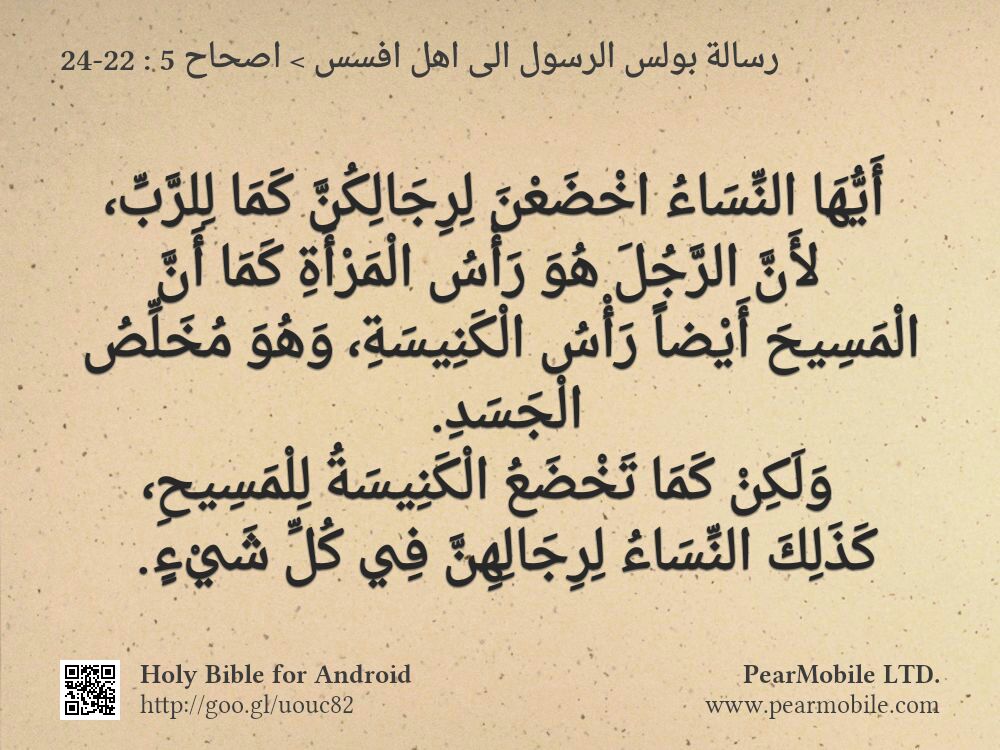 رسالة بولس الرسول الى اهل افسس > اصحاح 5 : 22-24
أَيُّهَا النِّسَاءُ اخْضَعْنَ لِرِجَالِكُنَّ كَمَا لِلرَّبِّ،
لأَنَّ الرَّجُلَ هُوَ رَأْسُ الْمَرْأَةِ كَمَا أَنَّ
الْمَسِيحَ أَيْضاً رَأْسُ الْكَنِيسَةِ، وَهُوَ مُخَلِّصُ
الْجَسَدِ.
وَلَكِنْ كَمَا تَخْضَعُ الْكَنِيسَةُ لِلْمَسِيحِ،
كَذَلِكَ النِّسَاءُ لِرِجَالِهِنَّ فِي كُلِّ شَيْءٍ.
Holy Bible for Android
http://goo.gl/uouc82
PearMobile LTD.
www.pearmobile.com